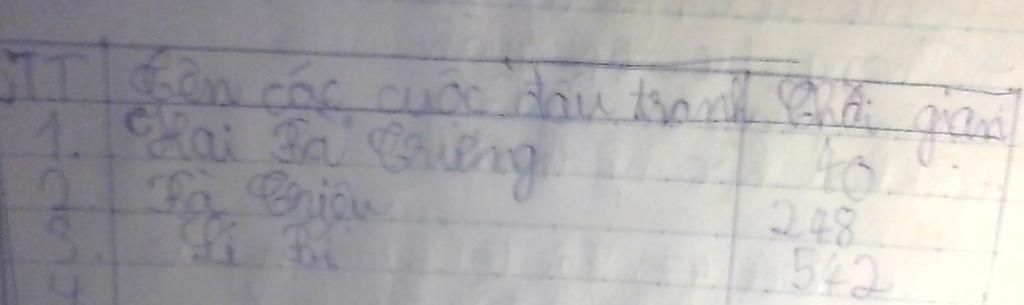 TT Tên các cuộc đấu tranh Thời gian
1. Hai Bà Trưng 40
2. Bà Triệu 248
3. Lí Bí 542
4